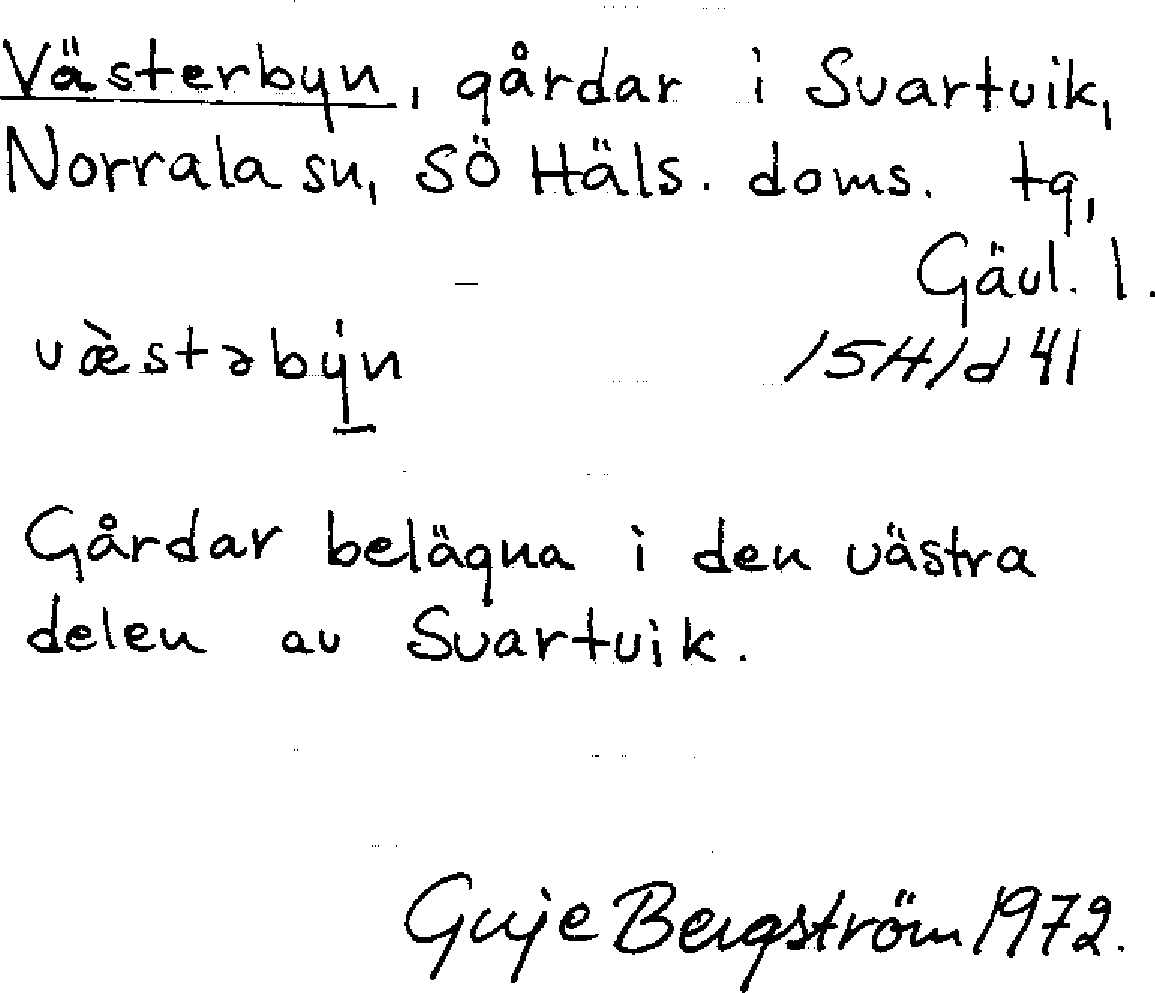 Västerbyn, gårdar i Svartvik,
Norrala sn, SÖ Häls. doms. tg,
Gävl. l.
væ̀stəby̩n 15H1d41
Gårdar belägna i den västra
delen av Svartvik.
Guje Bergström 1972.